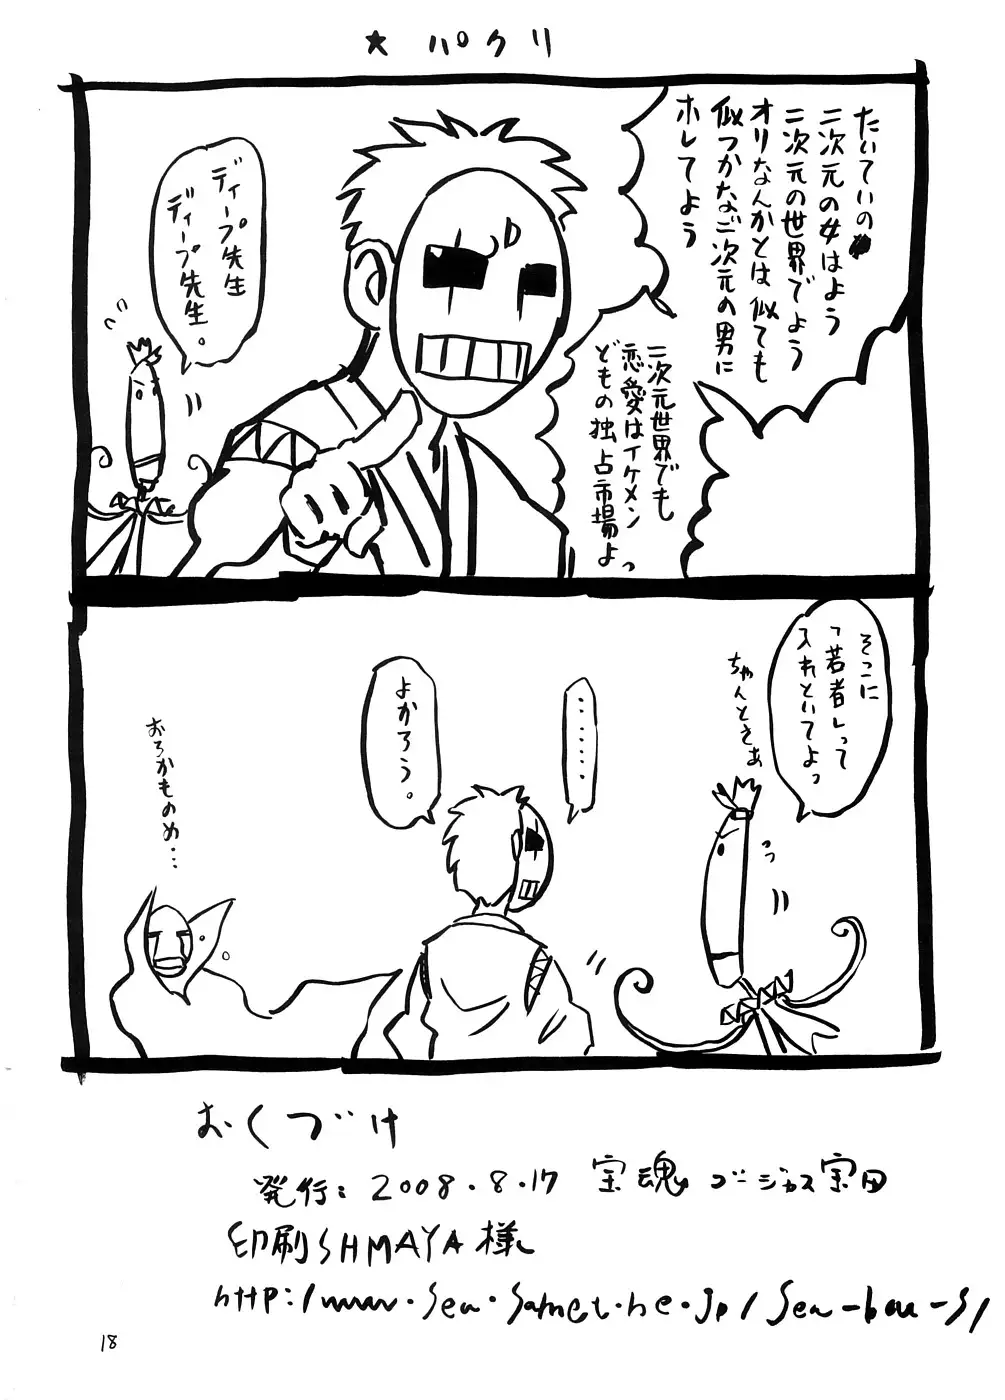 ★ パクリ
たいていの
二次元の女はよう
二次元の世界でよう
オリなんかとは似ても
似つかなご次元の男に
ホレてよう
二次元世界でも
恋愛はイケメン
どもの独占市場よっ
ディープ先生
ディープ先生。
そこに
「若者」って
入れといてよっ
ちゃんとさぁ
……
よかろう。
おろかものめ…
おくづけ
発行：2008.8.17 宝魂 ゴージャス宝田
印刷 SHMAYA 様
18